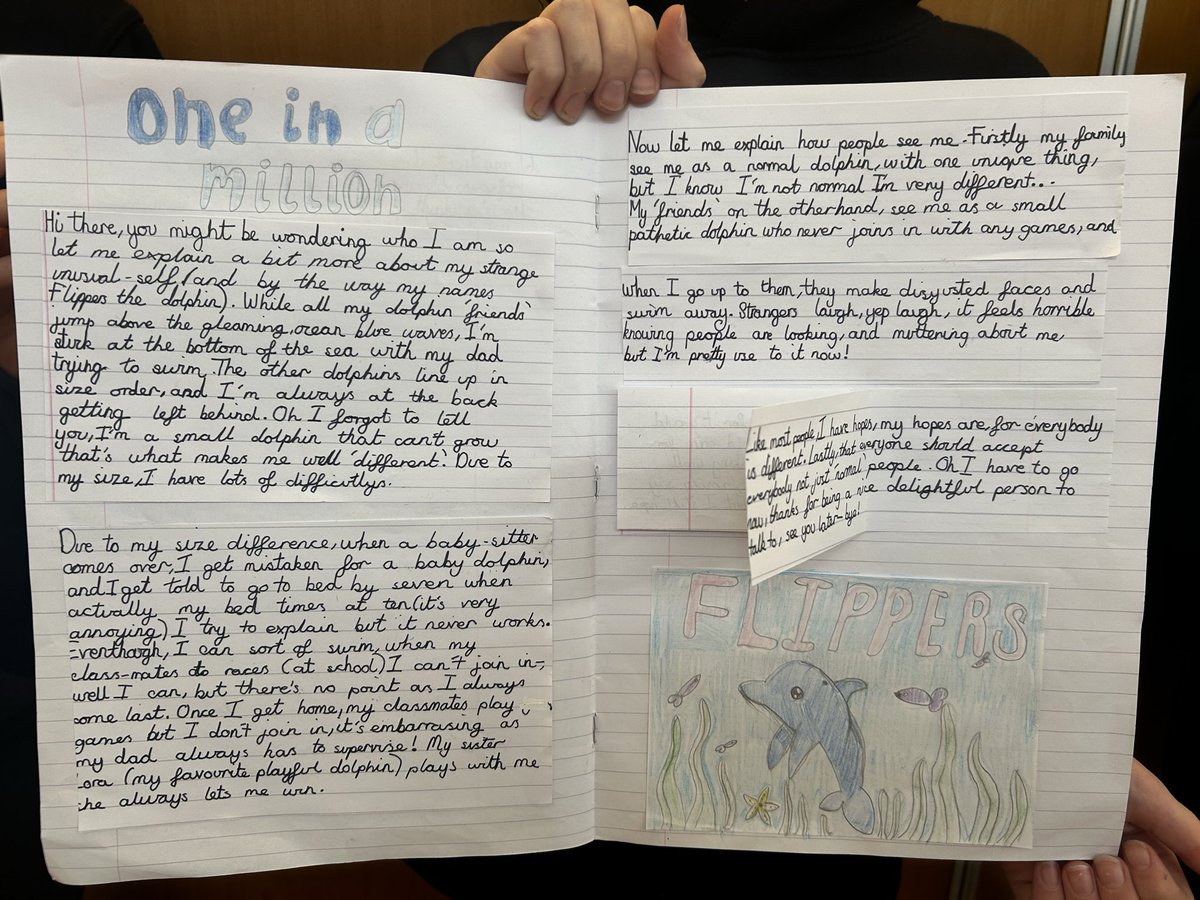 one in a
million
Hi there, you might be wondering who I am so
let me explain a bit more about my strange
unusual-self (and by the way my names
Flippers the dolphin). While all my dolphin 'friends'
jump above the gleaming, ocean blue waves, I'm
stuck at the bottom of the sea with my dad
trying to swim. The other dolphins line up in
size order, and I'm always at the back
getting left behind. Oh I forgot to tell
you, I'm a small dolphin that can't grow
that's what makes me well 'different'. Due to
my size, I have lots of difficultys.
Due to my size difference, when a baby-sitter
comes over, I get mistaken for a baby dolphin,
and I get told to go to bed by seven when
actually my bed times at ten (it's very
annoying) I try to explain but it never works.
Eventhough, I can sort of swim, when my
class-mates do races (at school) I can't join in-
well I can, but there's no point as I always
come last. Once I get home, my classmates play
games but I don't join in, it's embarrasing as
my dad always has to supervise! My sister
(my favourite playful dolphin) plays with me
she always lets me win.
Now let me explain how people see me. Firstly my family
see me as a normal dolphin, with one unique thing,
but I know I'm not normal I'm very different...
My 'friends' on the otherhand, see me as a small
pathetic dolphin who never joins in with any games, and
when I go up to them, they make disgusted faces and
swim away. Strangers laugh, yep laugh, it feels horrible
knowing people are looking, and muttering about me
but I'm pretty use to it now!
Like most people, I have hopes, my hopes are, for everybody
is different. Lastly, that everyone should accept
everybody not just 'normal' people. Oh I have to go
now, thanks for being a nice delightful person to
talk to, see you later-bye!
FLIPPERS